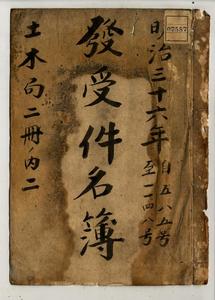 明治三十六年
自五八五号
至一一四八号
發受件名簿
土木向二冊ノ内二
07557